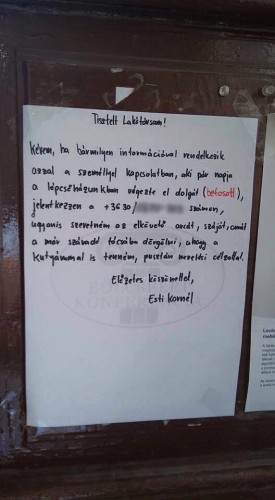 Tisztelt Lakótársam!
Kérem, ha bármilyen információval rendelkezik
azzal a személlyel kapcsolatban, aki pár napja
a lépcsőházunkban végezte el dolgát (befosott),
jelentkezzen a +3630/ számon,
ugyanis szeretném az elkövető arcát, száját, orrát
a már száradt tócsába dörgölni, ahogy a
kutyámmal is tenném, pusztán nevelési célzattal.
Előzetes köszönettel,
Esti Kornél